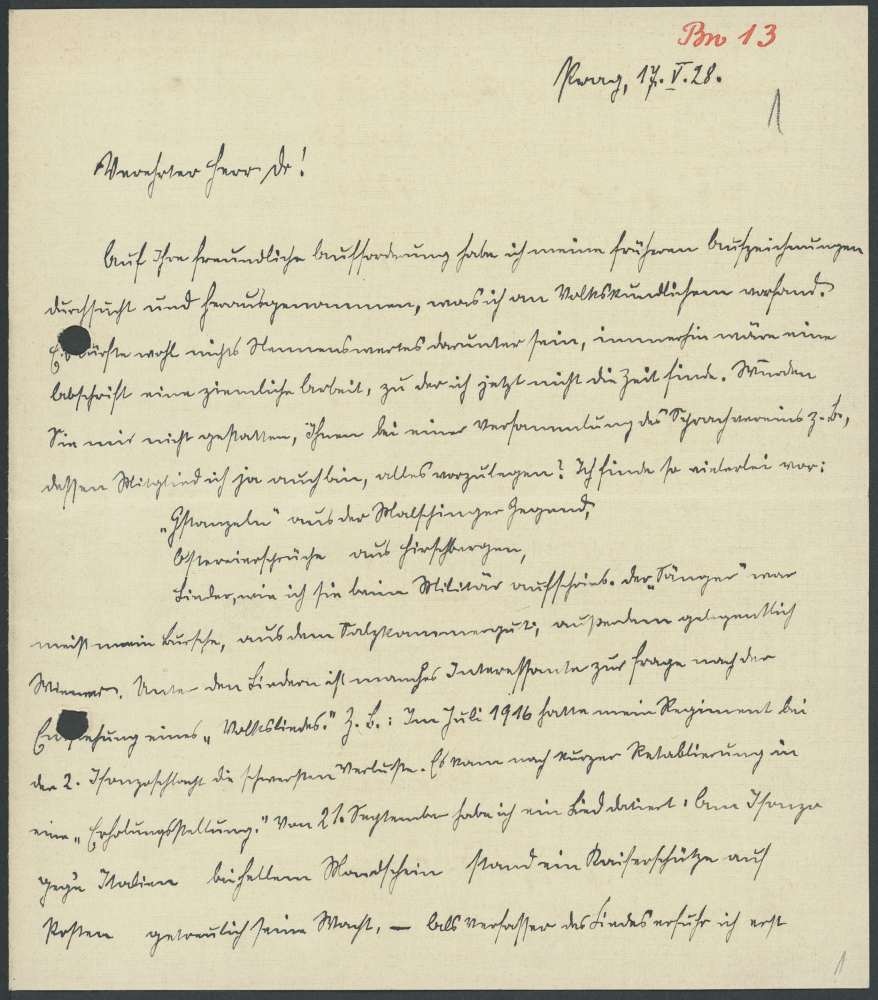 Br 13
Prag, 17. V. 28.
1
Verehrter Herr Dr!
Auf Ihre freundliche Aufforderung habe ich meine früheren Aufzeichnungen
durchsucht und herausgenommen, was ich an Volkskundlichem vorfand.
Es dürfte wohl nichts Nennenswertes darunter sein, immerhin wäre eine
Abschrift eine ziemliche Arbeit, zu der ich jetzt nicht die Zeit finde. Würden
Sie mir nicht gestatten, Ihnen bei einer Versammlung des Sprachvereins z. B.,
dessen Mitglied ich ja auch bin, alles vorzulegen? Ich finde so vielerlei vor:
„Gstanzeln" aus der Malschinger Gegend,
Ostereiersprüche aus Hirschbergen,
Lieder, wie ich sie beim Militär aufschrieb. Der „Sänger" war
meist mein Bursche, aus dem Salzkammergut, außerdem gelegentlich
Wiener. Unter den Liedern ist manches Interessante zur Frage nach der
Entstehung eines „Volksliedes." Z. B.: Im Juli 1916 hatte mein Regiment bei
der 2. Isonzoschlacht die schwersten Verluste. Es kam nach kurzer Retablierung in
eine „Erholungsstellung." Von 21. September habe ich ein Lied datiert: Am Isonzo
geg'n Italien bei hellem Mondschein stand ein Kaiserschütze auf
Posten getreulich seine Wacht. — Als Verfasser des Liedes erfuhr ich erst
1